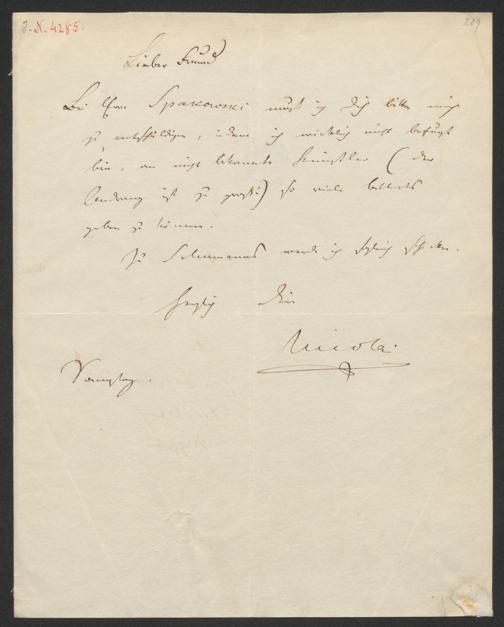 J.-N. 4285.
209
Lieber Freund
Bei Hrn. Spakowski muß ich Dich bitten mich
zu entschuldigen, indem ich wirklich nicht befugt
bin, an nicht bekannte Künstler (der
Andrang ist zu groß!) so viele Billets
geben zu können.
Zu Schumanns werde ich sogleich schicken.
Herzlich Dein
Nicolai.